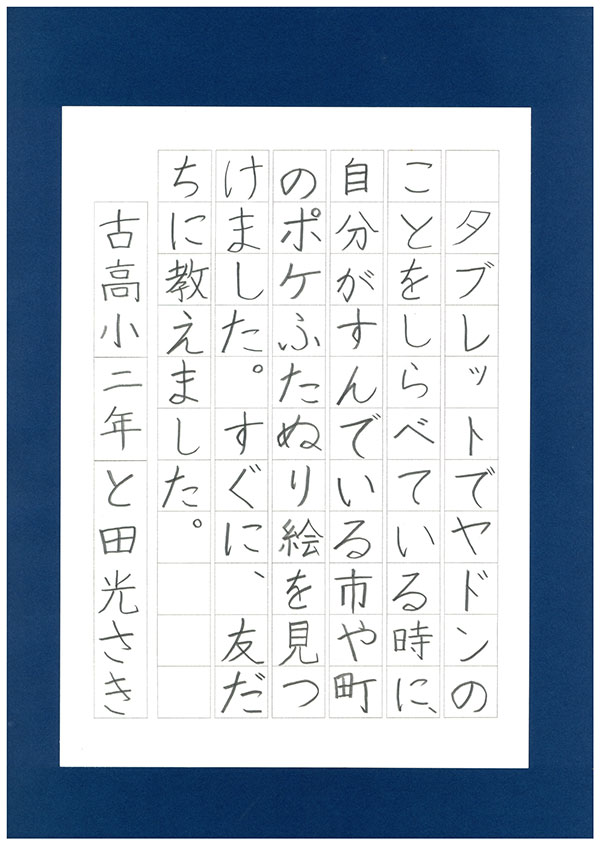 タブレットでヤドンの
ことをしらべている時に、
自分がすんでいる市や町
のポケふたぬり絵を見つ
けました。すぐに、友だ
ちに教えました。
古高小二年と田光さき